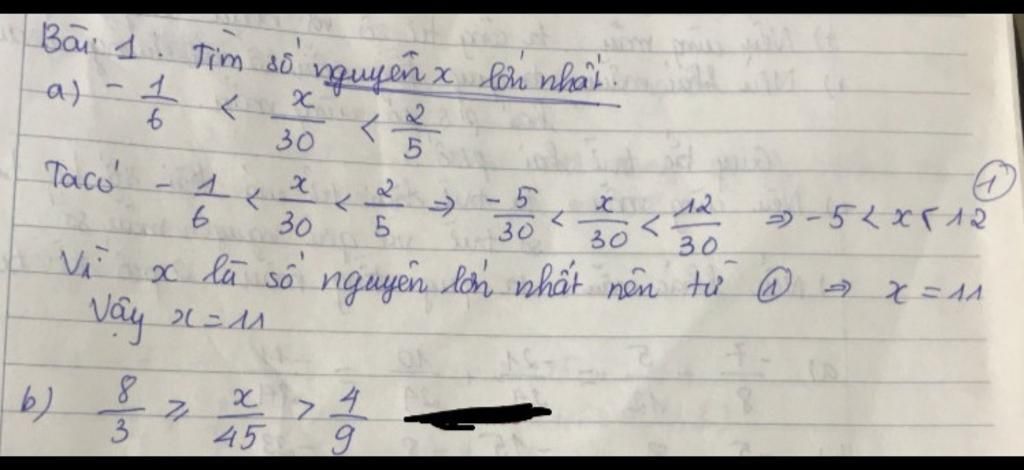 Bài 1. Tìm số nguyên x lớn nhất.
a) -1/6 < x/30 < 2/5
Ta có -1/6 < x/30 < 2/5 ⇒ -5/30 < x/30 < 12/30 ⇒ -5 < x < 12 ①
Vì x là số nguyên lớn nhất nên từ ① ⇒ x = 11
Vậy x = 11
b) 8/3 ≥ x/45 > 4/9